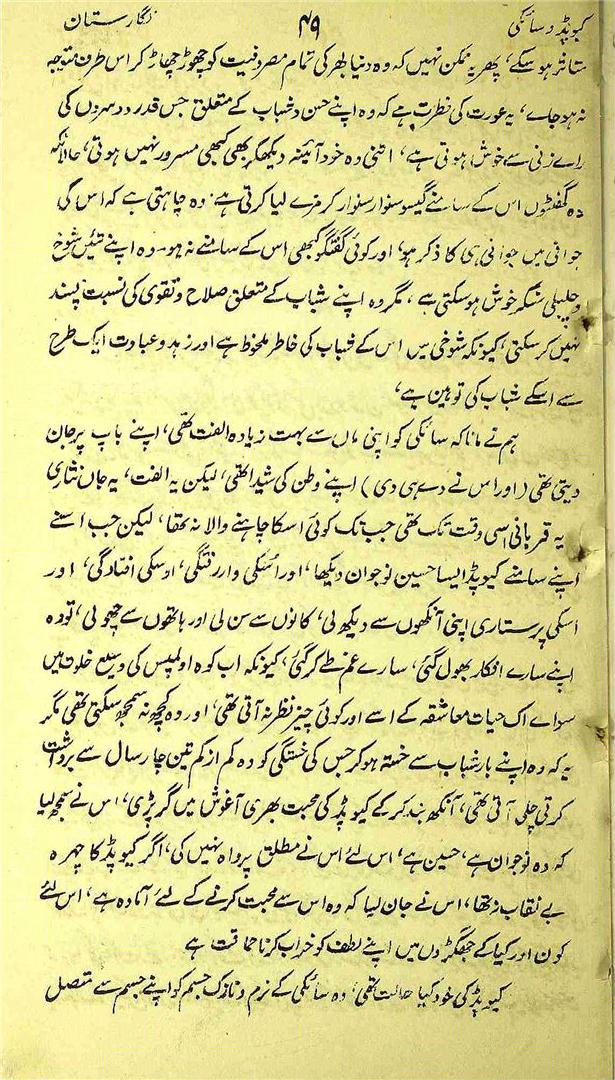 کیوپڈ و سائکی ۴۹ نگارستان
متاثر ہوسکے، پھر یہ ممکن نہیں کہ وہ دنیا بھر کی تمام مصروفیت کو چھوڑ چھاڑ کر اس طرف متوجہ
نہ ہوجاے، یہ عورت کی فطرت ہے کہ وہ اپنے حسن و شباب کے متعلق جس قدر دوسروں کی
راے زنی سے خوش ہوتی ہے، اتنی وہ خود آئینہ دیکھکر بھی کبھی مسرور نہیں ہوتی، حالانکہ
وہ گھنٹوں اس کے سامنے گیسو سنوار سنوار کر مزے لیا کرتی ہے۔ وہ چاہتی ہے کہ اس کی
جوانی میں جوانی ہی کا ذکر ہو، اور کوئی گفتگو کبھی اس کے سامنے نہ ہو۔ وہ اپنے تئیں شوخ
و چلبلی سنکر خوش ہوسکتی ہے، مگر وہ اپنے شباب کے متعلق صلاح و تقوی کی نسبت پسند
نہیں کرسکتی، کیونکہ شوخی میں اس کے شباب کی خاطر ملحوظ ہے اور زہد و عبادت ایک طرح
سے اسکے شباب کی توہین ہے،
ہم نے مانا کہ سائکی کو اپنی ماں سے بہت زیادہ الفت تھی، اپنے باپ پر جان
دیتی تھی (اور اس نے دے ہی دی) اپنے وطن کی شیدا تھی، لیکن یہ الفت، یہ جاں نثاری
یہ قربانی اسی وقت تک تھی جب تک کوئی اسکا چاہنے والا نہ تھا، لیکن جب اسنے
اپنے سامنے کیوپڈ ایسا حسین نوجوان دیکھا، اور اسکی وارفتگی، اوسکی افتادگی، اور
اسکی پرستاری اپنی آنکھوں سے دیکھ لی، کانوں سے سن لی اور ہاتھوں سے چھولی، تو وہ
اپنے سارے افکار بھول گئی، سارے غم طے کر گئی، کیونکہ اب کوہ اولمپس کی وسیع خلوت میں
سواے اک حیات معاشقہ کے اسے اور کوئی چیز نظر نہ آتی تھی، اور وہ کچھ نہ سمجھ سکتی تھی مگر
یہ کہ وہ اپنے بار شباب سے خستہ ہوکر جس کی خستگی کو وہ کم از کم تین چار سال سے برداشت
کرتی چلی آتی تھی، آنکھ بند کرکے کیوپڈ کی محبت بھری آغوش میں گر پڑی، اس نے سمجھ لیا
کہ وہ نوجوان ہے، حسین ہے، اس لئے اس نے مطلق پرواہ نہیں کی، اگر کیوپڈ کا چہرہ
بے نقاب نہ تھا، اس نے جان لیا کہ وہ اس سے محبت کرنے کے لئے آمادہ ہے، اس لئے
کون اور کیا کے جھگڑوں میں اپنے لطف کو خراب کرنا حماقت ہے
کیوپڈ کی خود کیا حالت تھی، وہ سائکی کے نرم و نازک جسم کو اپنے جسم سے متصل